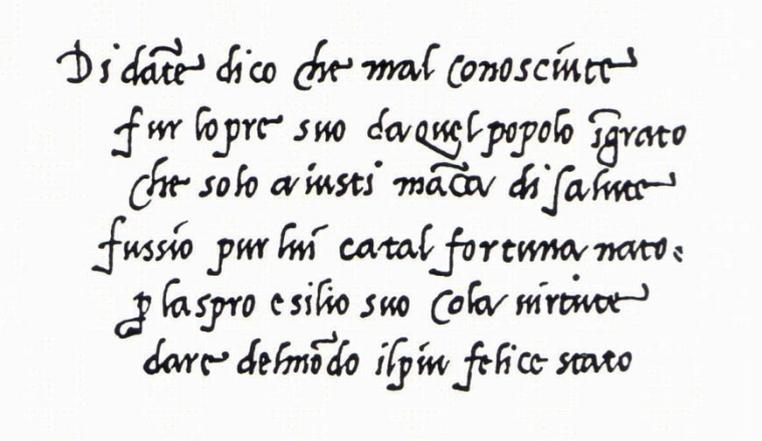 Di dāte dico che mal conosciute
fur lopre suo daquel popolo īgrato
che solo aiusti māca di salute
fussio pur lui catal fortuna nato:
ꝑ laspro esilio suo cola uirtute
dare delmōdo ilpiu felice stato